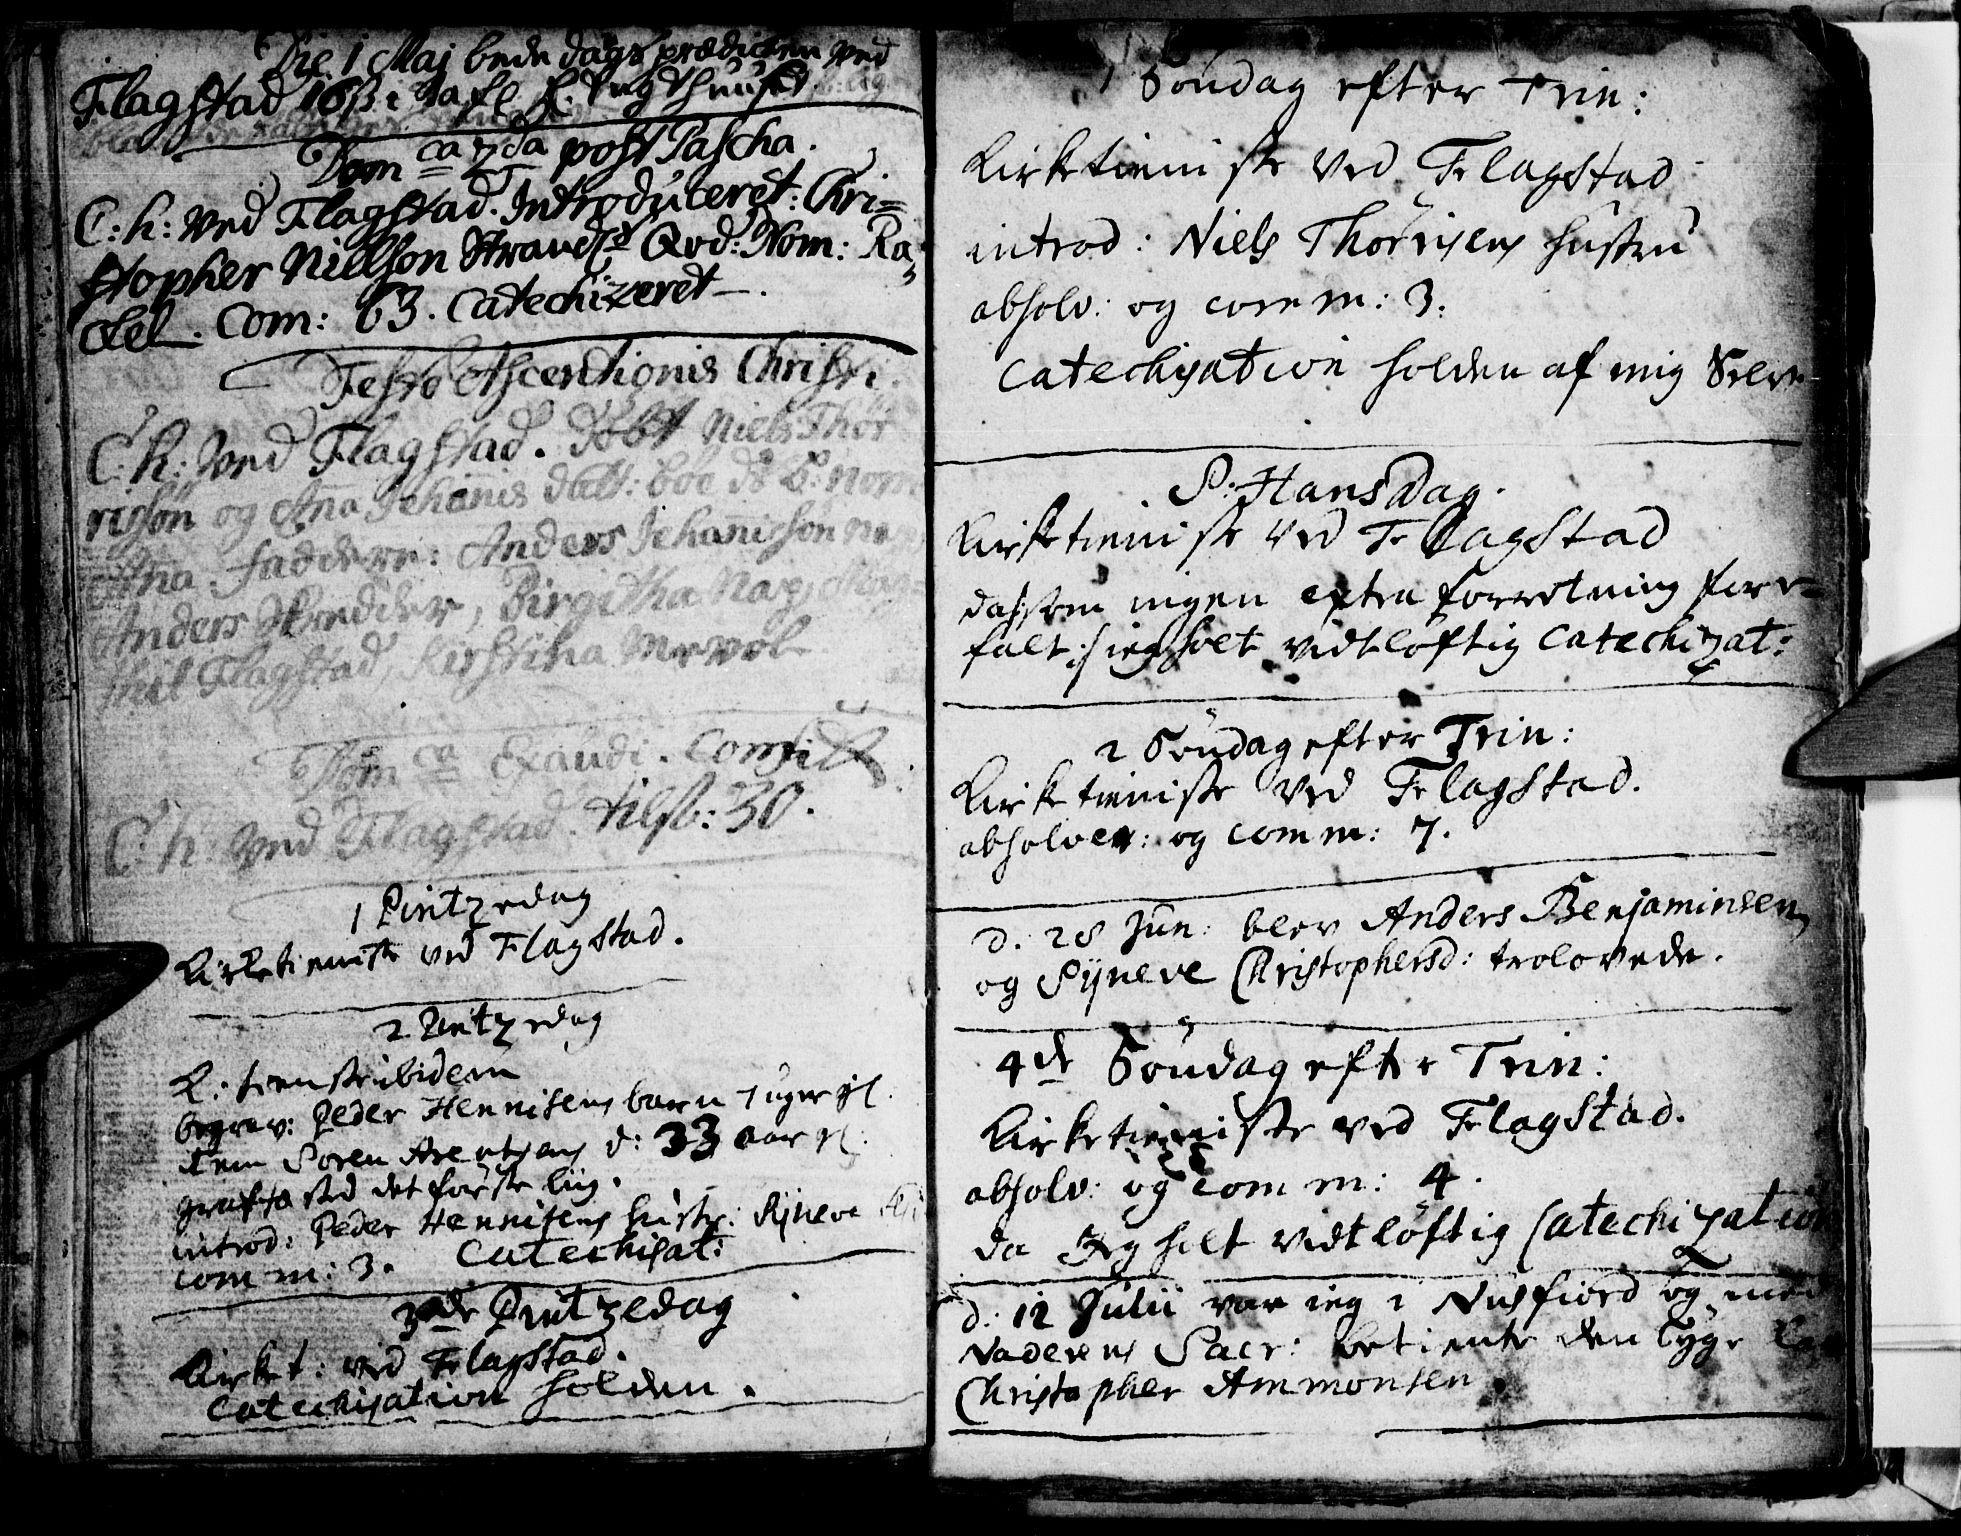 Die 1 Maj bede dags prædicken ved
Flagstad
Dom ca 2da post Pascha.
C: h: ved Flagstad. Introduceret: Chri=
stopher Nielsøn Qvd: Nom: Ra=
chel. Com: 63. Catechizeret.
Festo Ascentionis Christi
C: h: ved Flagstad. døbt Niels Thor
risøn og Ana Jehanis datt: boe ds b: nom
Ana. faddere: Anders Jehanisøn
Anders Skredder, Birgitha
Flagstad, Kirstina
Dom ca Exaudi. Confit
C: h: ved Flagstad. 30.
1 Pintzedag
Kirketieniste ved Flagstad.
2 Pintzedag
K: tieniste ibidem
begrav: Peder Hennisens barn 7 uger gl.
item Søren Arentsens d: 33 aar gl:
det første liig.
introd: Peder Hennisens hustr: Syneve
comm: 3. Catechisat:
3de Pintzedag
Kirket: ved Flagstad.
Catechisation holden.
1 Søndag efter Trin:
Kirketieniste ved Flagstad
introd: Niels Thorrisens hustru
absolv: og comm: 3.
Catechisation holden af mig Selv
S: Hans Dag.
Kirketieniste ved Flagstad
dassom ingen extra forretning forre=
falt; ieg holt vidtløftig Catechizat:
2 Søndag efter Trin:
Kirketieniste ved Flagstad.
absolver: og comm: 7.
d. 28 Jun: blev Anders Benjaminsen
og Syneve Christophersd: trolovede.
4de Søndag efter Trin:
Kirketieniste ved Flagstad.
absolv: og comm: 4.
da Jeg holt vidtløftig Catechization
d. 12 Julii var ieg i Nusfiord og med
Naderens Sacr: betiente den syge
Christopher Ammonsen.